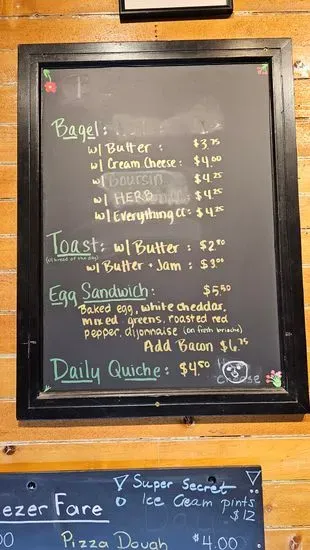 Bagel:
w/ Butter : $3.75
w/ Cream Cheese: $4.00
w/ Boursin $4.25
w/ HERB $4.25
w/ Everything CC: $4.25
Toast: w/ Butter : $2.50
(of bread of the day)
w/ Butter + Jam : $3.00
Egg Sandwich: $5.50
Baked egg, white cheddar,
mixed greens, roasted red
pepper, dijonnaise (on fresh brioche)
Add Bacon $6.75
Daily Quiche: $4.50
Super Secret
Ice Cream pints
$12
ezer Fare
00 Pizza Dough $4.00